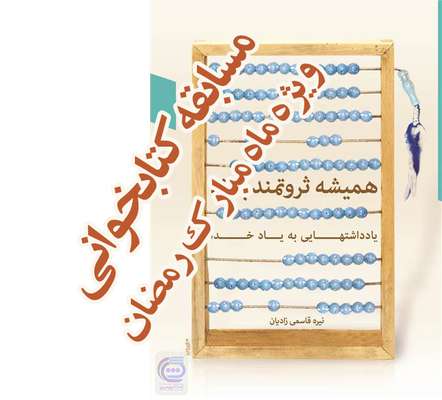 مسابقه کتابخوانی
ویژه ماه مبارک رمضان
همیشه ثروتمند
یادداشتهایی به یاد خد
نیره قاسمی زادیان